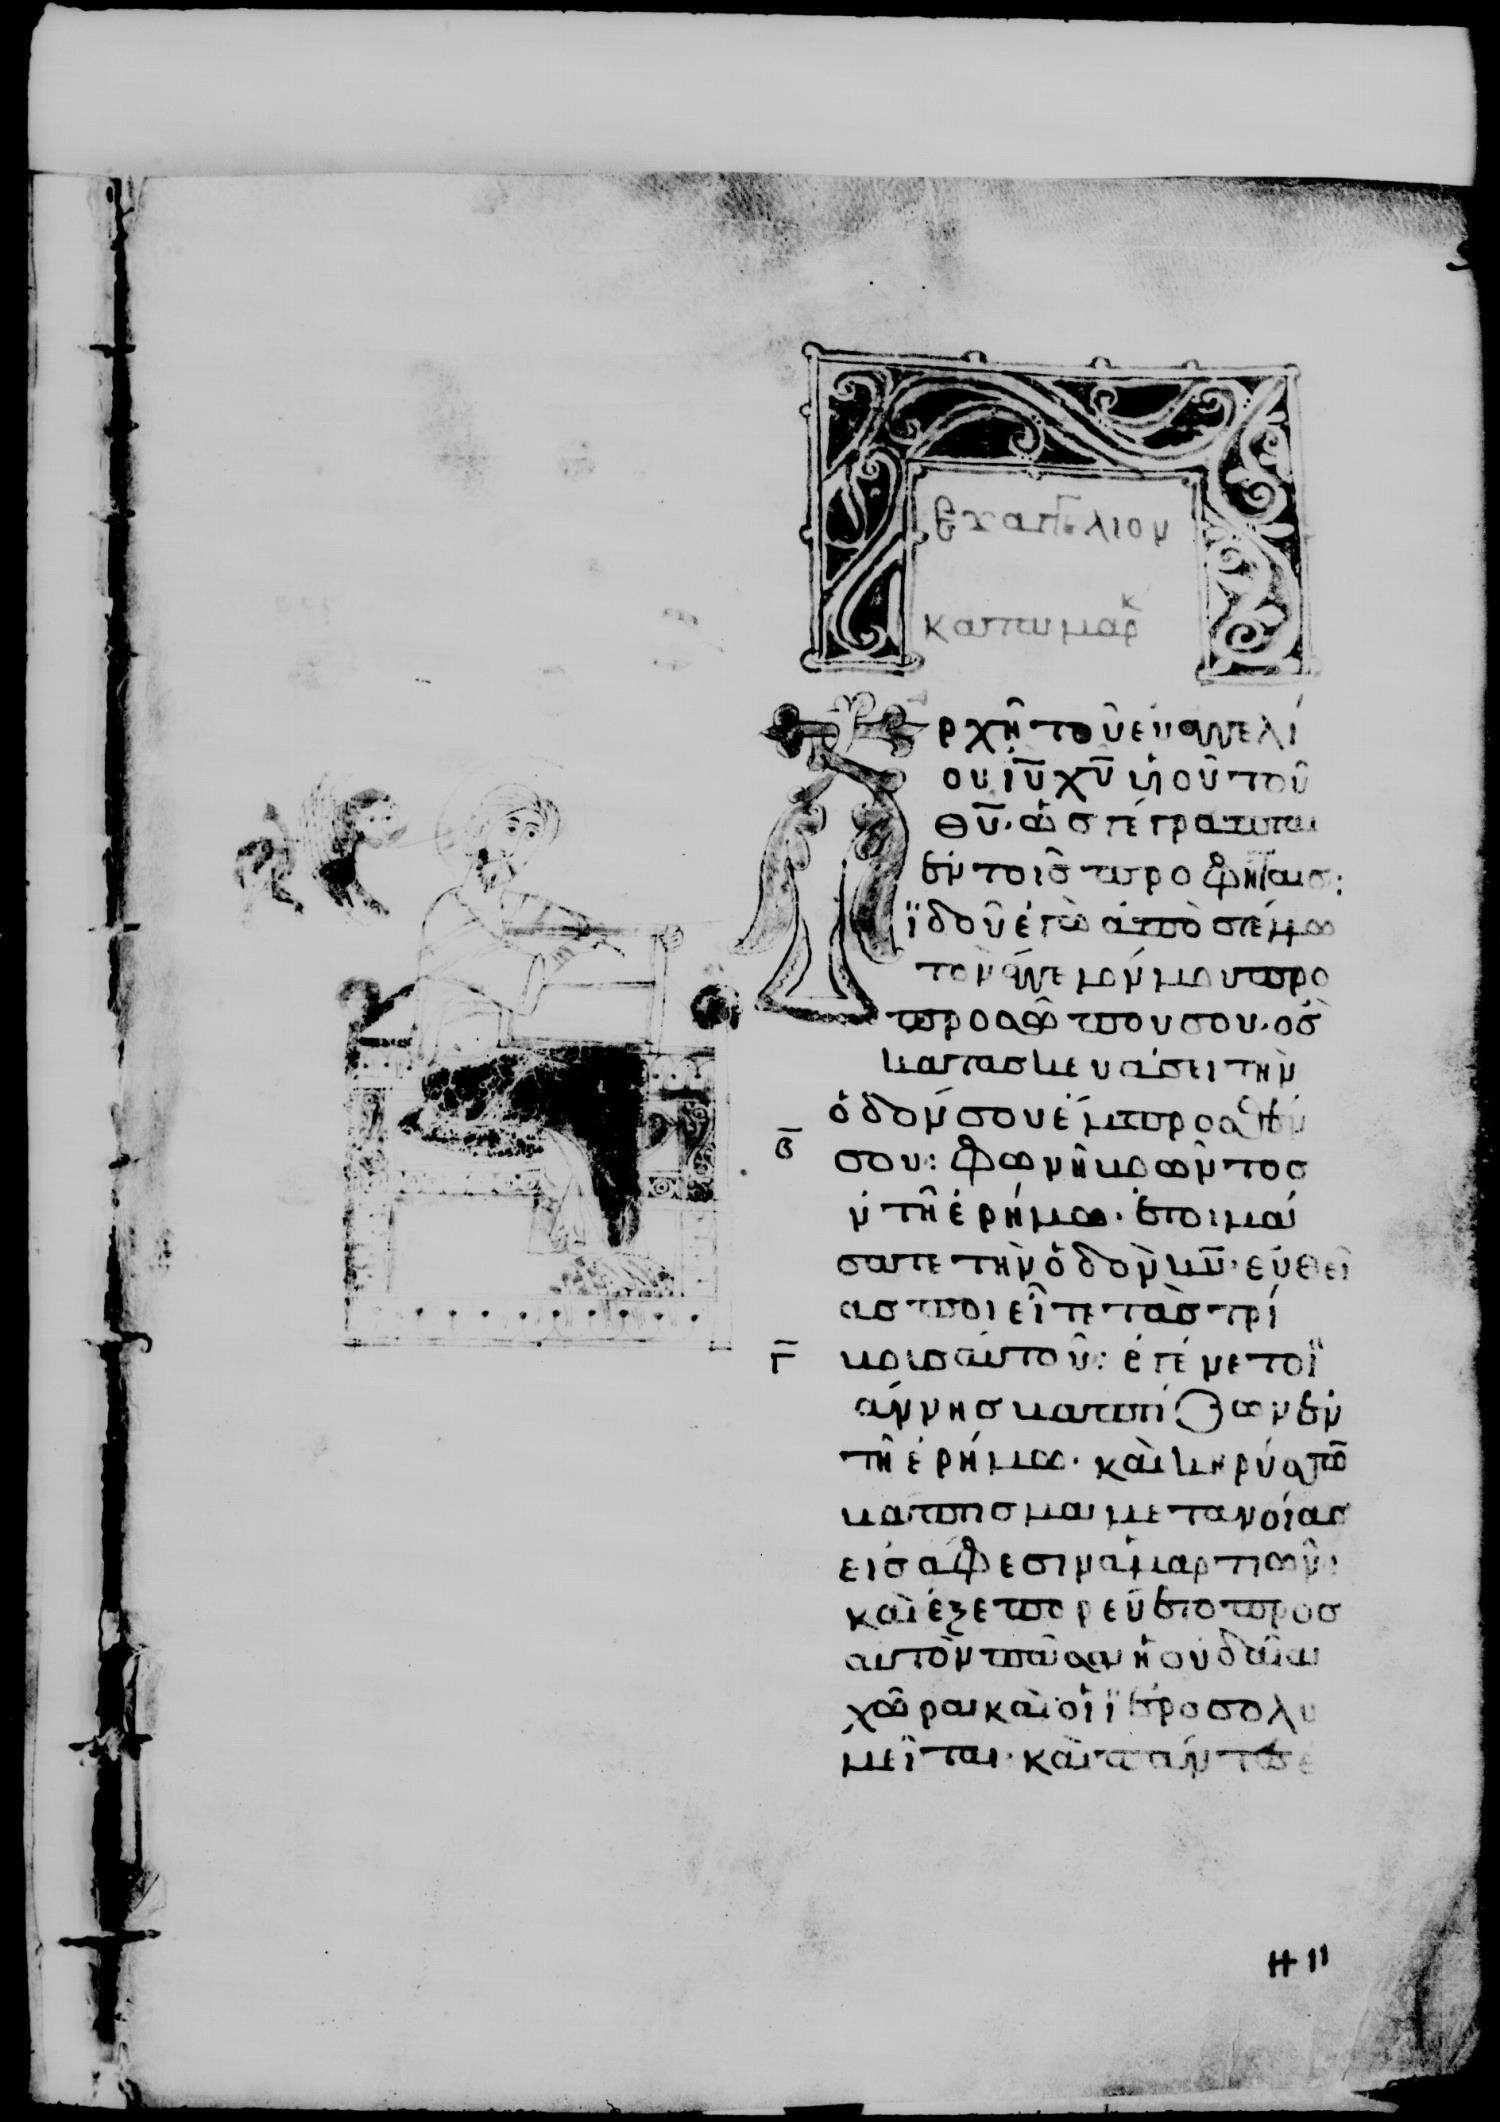 Εὐαγγέλιον
κατὰ μάρκ
Ἀρχὴ τοῦ εὐαγγελί
ου ιυ χυ υἱοῦ τοῦ
θυ· ὡς γέγραπται
ἐν τοῖς προφήταις:
ἰδοῦ ἐγὼ ἀποστέλλω
τὸν ἄγγελόν μου προ
προσώπου σου· ὃς
κατασκευάσει τὴν
ὁδόν σου ἔμπροσθέν
β σου: φωνὴ βοῶντος
ἐν τῆ ἐρήμω· ἑτοιμά
σατε τὴν ὁδὸν κυ· εὐθεί
ας ποιεῖτε τὰς τρί
γ βους αὐτοῦ: ἐγένετο ϊ
ωάννης βαπτίζων ἐν
τῆ ἐρήμω· καὶ κηρύσσων
βάπτισμα μετανοίας
εἰς ἄφεσιν ἁμαρτιῶν·
καὶ ἐξεπορεύετο προς
αὐτὸν πᾶσα ἡ ϊουδαία
χώρα καὶ οἱ ϊεροσολυ
μεῖται· καὶ
11